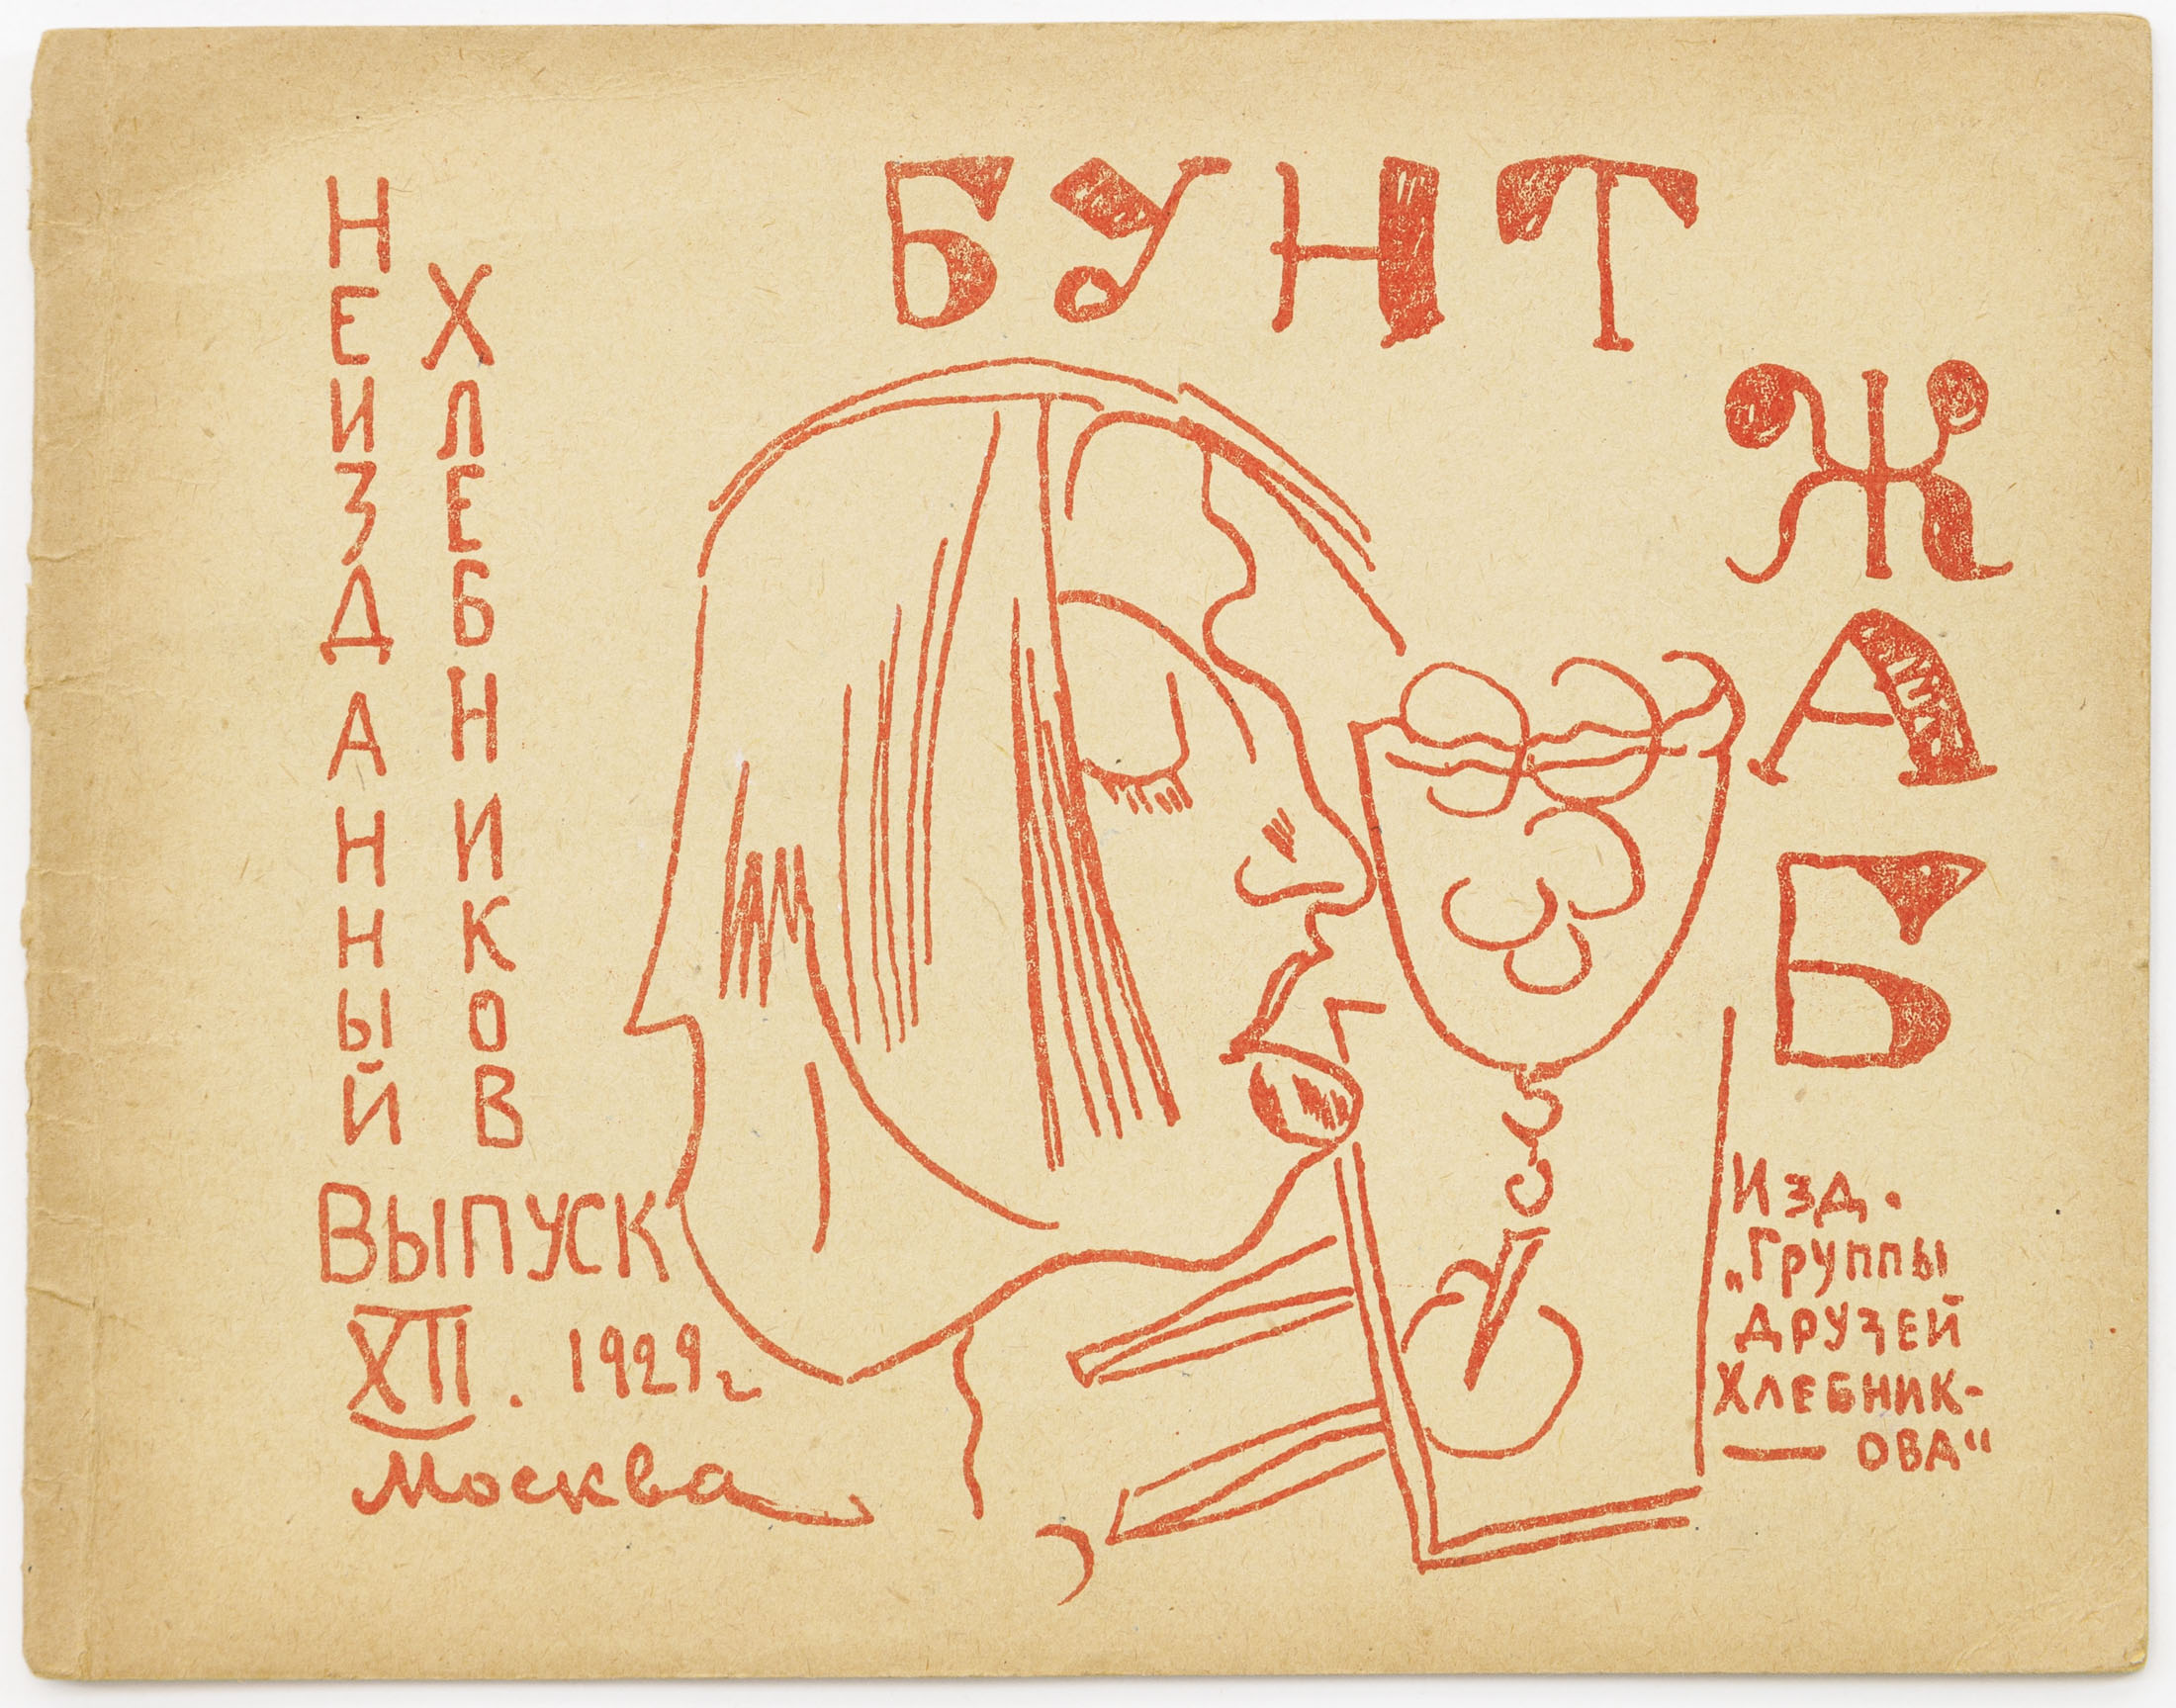 НЕИЗДАННЫЙ
ХЛЕБНИКОВ
ВЫПУСК
XII. 1929г
Москва
БУНТ
ЖАБ
Изд.
„Группы
друзей
Хлебник-
ова“